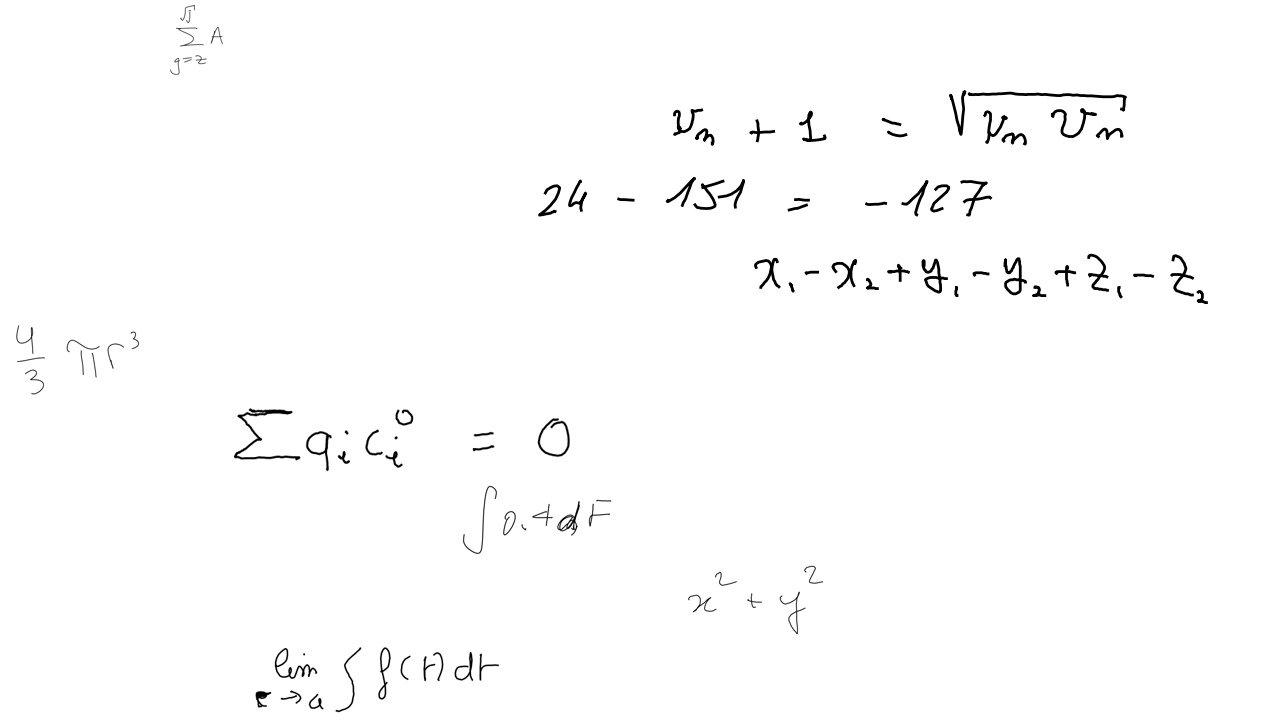 $\sum_{g=z}^{\sqrt{J}} A$
$v_n + 1 = \sqrt{v_n v_n}$
$24 - 151 = -127$
$x_1 - x_2 + y_1 - y_2 + z_1 - z_2$
$\frac{4}{3} \pi r^3$
$\sum q_i c_i^0 = 0$
$\int 0.4 dF$
$x^2 + y^2$
$\lim_{r \to a} \int f(t) dt$